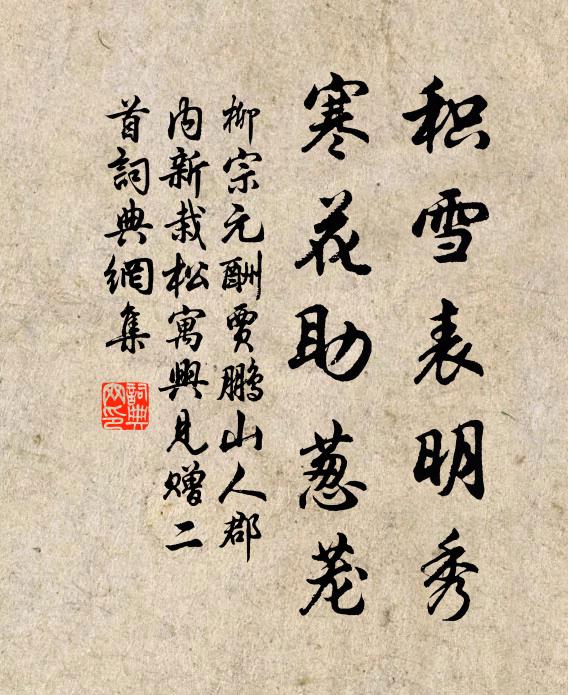 积雪表明秀
寒花助葱茏
柳宗元酬贾鹏山人郡
内新栽松寓興見赠二
首詞典網集
詞典
网印